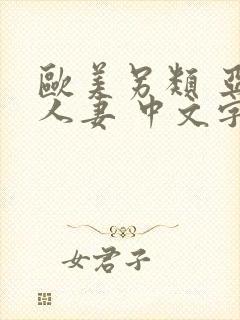 歐美另類 亞
人妻 中文字
女君子